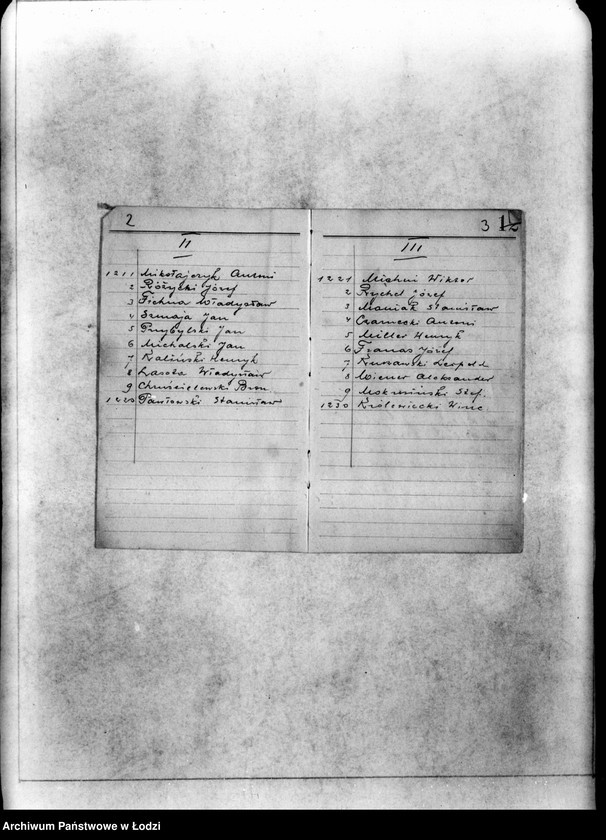 2
II
1211 Mikołajczyk Antoni
2 Różycki Józef
3 Fichna Władysław
4 Szmaja Jan
5 Przybylski Jan
6 Michalski Jan
7 Kaliński Henryk
8 Lasota Władysław
9 Chruścielewski Bron.
1220 Pawłowski Stanisław
3
III
1221 Wiktor
2 Rychel Józef
3 Maniak Stanisław
4 Czarnecki Antoni
5 Miller Henryk
6 Franas Józef
7 Leopold
8 Wiener Aleksander
9 Mokrosiński Stef.
1230 Królewiecki Winc
Archiwum Państwowe w Łodzi